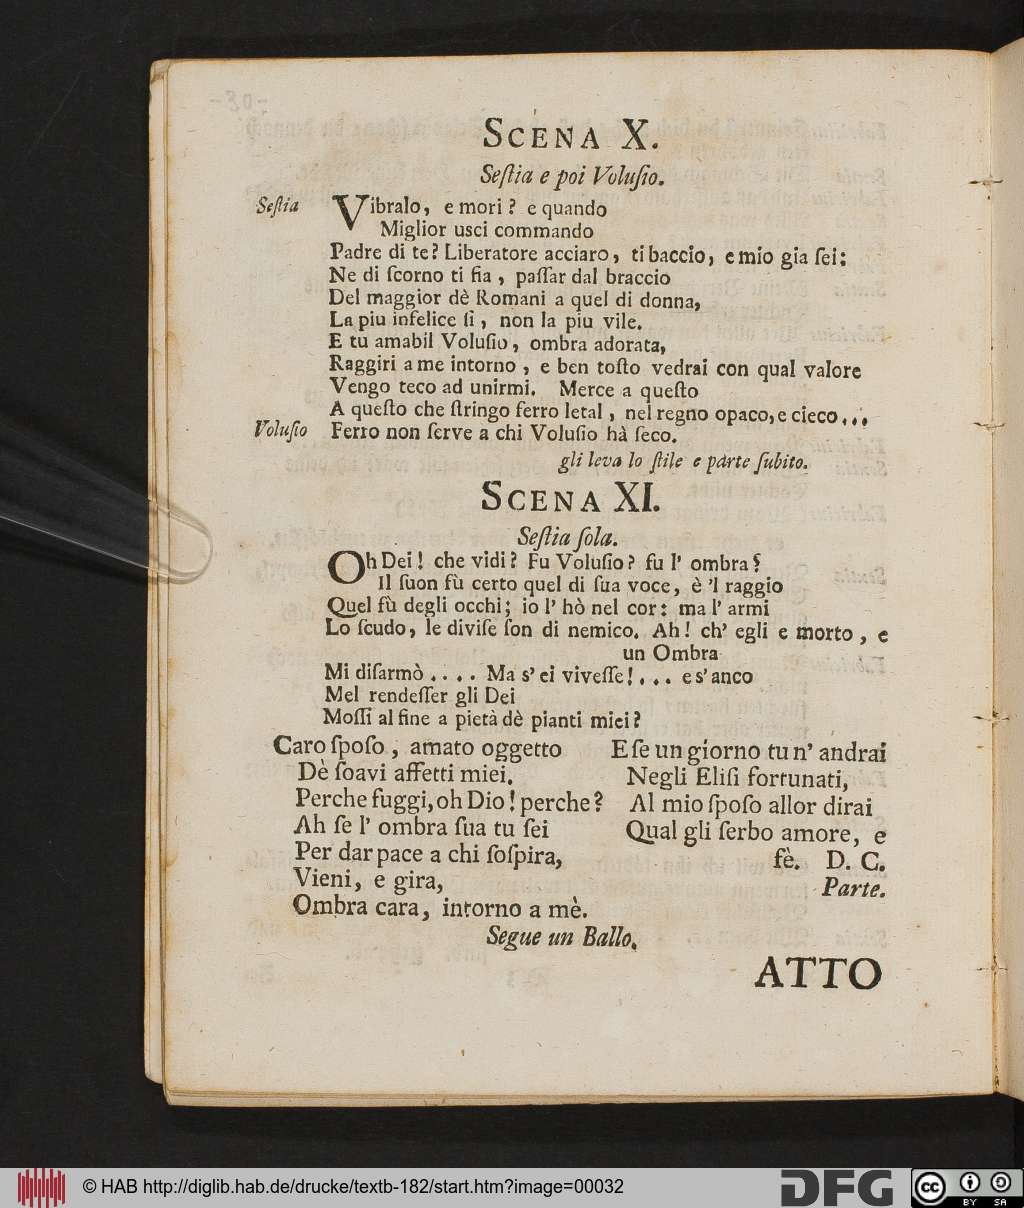 SCENA X.
Seſtia e poi Voluſio.
Seſtia Vibralo, e mori? e quando
Miglior usci commando
Padre di te? Liberatore acciaro, ti baccio, e mio gia ſei:
Ne di ſcorno ti fia, paſſar dal braccio
Del maggior dè Romani a quel di donna,
La piu infelice ſi, non la piu vile.
E tu amabil Voluſio, ombra adorata,
Raggiri a me intorno, e ben toſto vedrai con qual valore
Vengo teco ad unirmi. Merce a queſto
A queſto che ſtringo ferro letal, nel regno opaco, e cieco...
Voluſio Ferro non ſerve a chi Voluſio hà ſeco.
gli leva lo ſtile e parte ſubito.
SCENA XI.
Seſtia ſola.
Oh Dei! che vidi? Fu Voluſio? fu l' ombra?
Il ſuon fù certo quel di ſua voce, è 'l raggio
Quel fù degli occhi; io l' hò nel cor: ma l' armi
Lo ſcudo, le diviſe ſon di nemico. Ah! ch' egli e morto, e
un Ombra
Mi diſarmò.... Ma s' ei viveſſe!... e s' anco
Mel rendeſſer gli Dei
Moſſi al fine a pietà dè pianti miei?
Caro ſpoſo, amato oggetto
Dè ſoavi affetti miei.
Perche fuggi, oh Dio! perche?
Ah ſe l' ombra ſua tu ſei
Per dar pace a chi ſoſpira,
Vieni, e gira,
Ombra cara, intorno a mè.
E ſe un giorno tu n' andrai
Negli Eliſi fortunati,
Al mio ſpoſo allor dirai
Qual gli ſerbo amore, e
fè. D. C.
Parte.
Segue un Ballo.
ATTO
© HAB http://diglib.hab.de/drucke/textb-182/start.htm?image=00032
DFG
cc BY SA